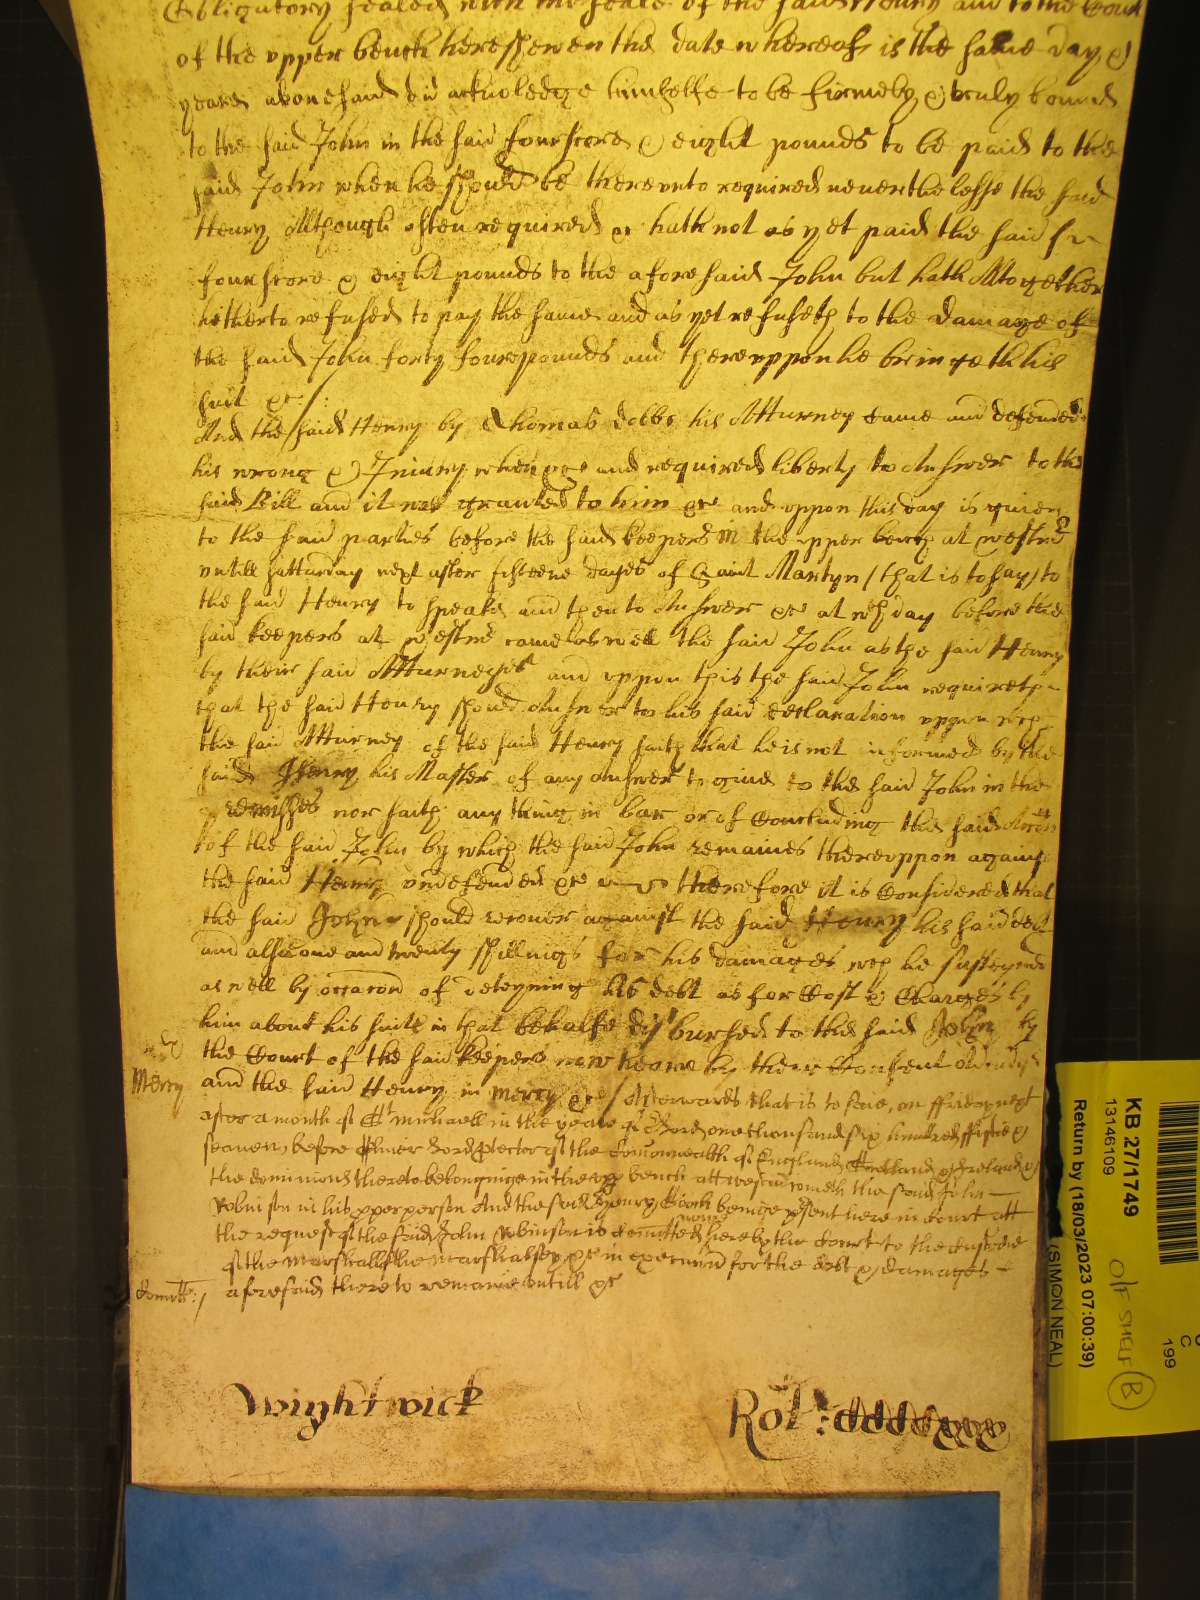 Obligatory sealed with the seale of the said Henry and to the Court
of the upper bench here shewen the date whereof is the same day &
yeare abovesaid did acknoledge himselfe to be firmely & truly bound
to the said John in the said fourscore & eight pounds to be paid to the
said John when he should be thereunto required neverthelesse the said
Henry Although often required &c hath not as yet paid the said
fourscore & eight pounds to the aforesaid John but hath Altogether
hetherto refused to pay the same and as yet refuseth to the damage of
the said John forty foure pounds and thereuppon he bringeth his
suit &c /:
And the said Henry by Thomas dobbs his Atturney came and defended
his wrong & Iniury when &c and required liberty to Answer to the
said Bill and it was granted to him &c and uppon this day is given
to the said parties before the said keepers in the upper bench at westmr
untill satturday next after fifteene dayes of Saint Martyn / that is to say / to
the said Henry to speake and then to Answer &c at wch day before the
said keepers at westmr came aswell the said John as the said Henry
by their said Atturneyes and uppon this the said John requireth
that the said Henry should Answer to his said declaration uppon wch
the said Atturney of the said Henry saith that he is not informed by the
said Henry his Master of any Answer to give to the said John in the
premisses nor saith any thing in bar or of Concluding the said Accon
of the said John by which the said John remaines thereuppon against
the said Henry undefended &c therefore it is Considered that
the said John should recover against the said Henry his said debt
and also one and twenty shillings for his damages wch he susteyned
aswell by occacon of deteyning his debt as for Cost & Charges by
him about his suite in that behalfe disbursed to the said John by
the Court of the said keepers now heare by their Consent Adiudged
Mercy and the said Henry in mercy &c / Afterwards that is to saie, on ffriday next
after a month of St Michaell in the yeare of or Lord one thousand six hundred fiftie &
seaven, before Oliver Lord Protector of the Comonwealth of England Scotland & Ireland &
the dominions thereto belonginge in the upp bench att westmr cometh the said John
Robinson in his proper person And the said Henry Cooch beinge psent here in Court att
the request of the said John Robinson is comitted now here by the Court to the Custodie
of the Marshall of the marshalsey &c in execucon for the debt & damages
Comitt: / aforesaid there to remaine untill &c
Wightwick Rot: cccclxxxx
KB 27/1749
13146109
Return by (18/03/2023 07:00:39)
(SIMON NEAL)
O/F SHELF B
C
199